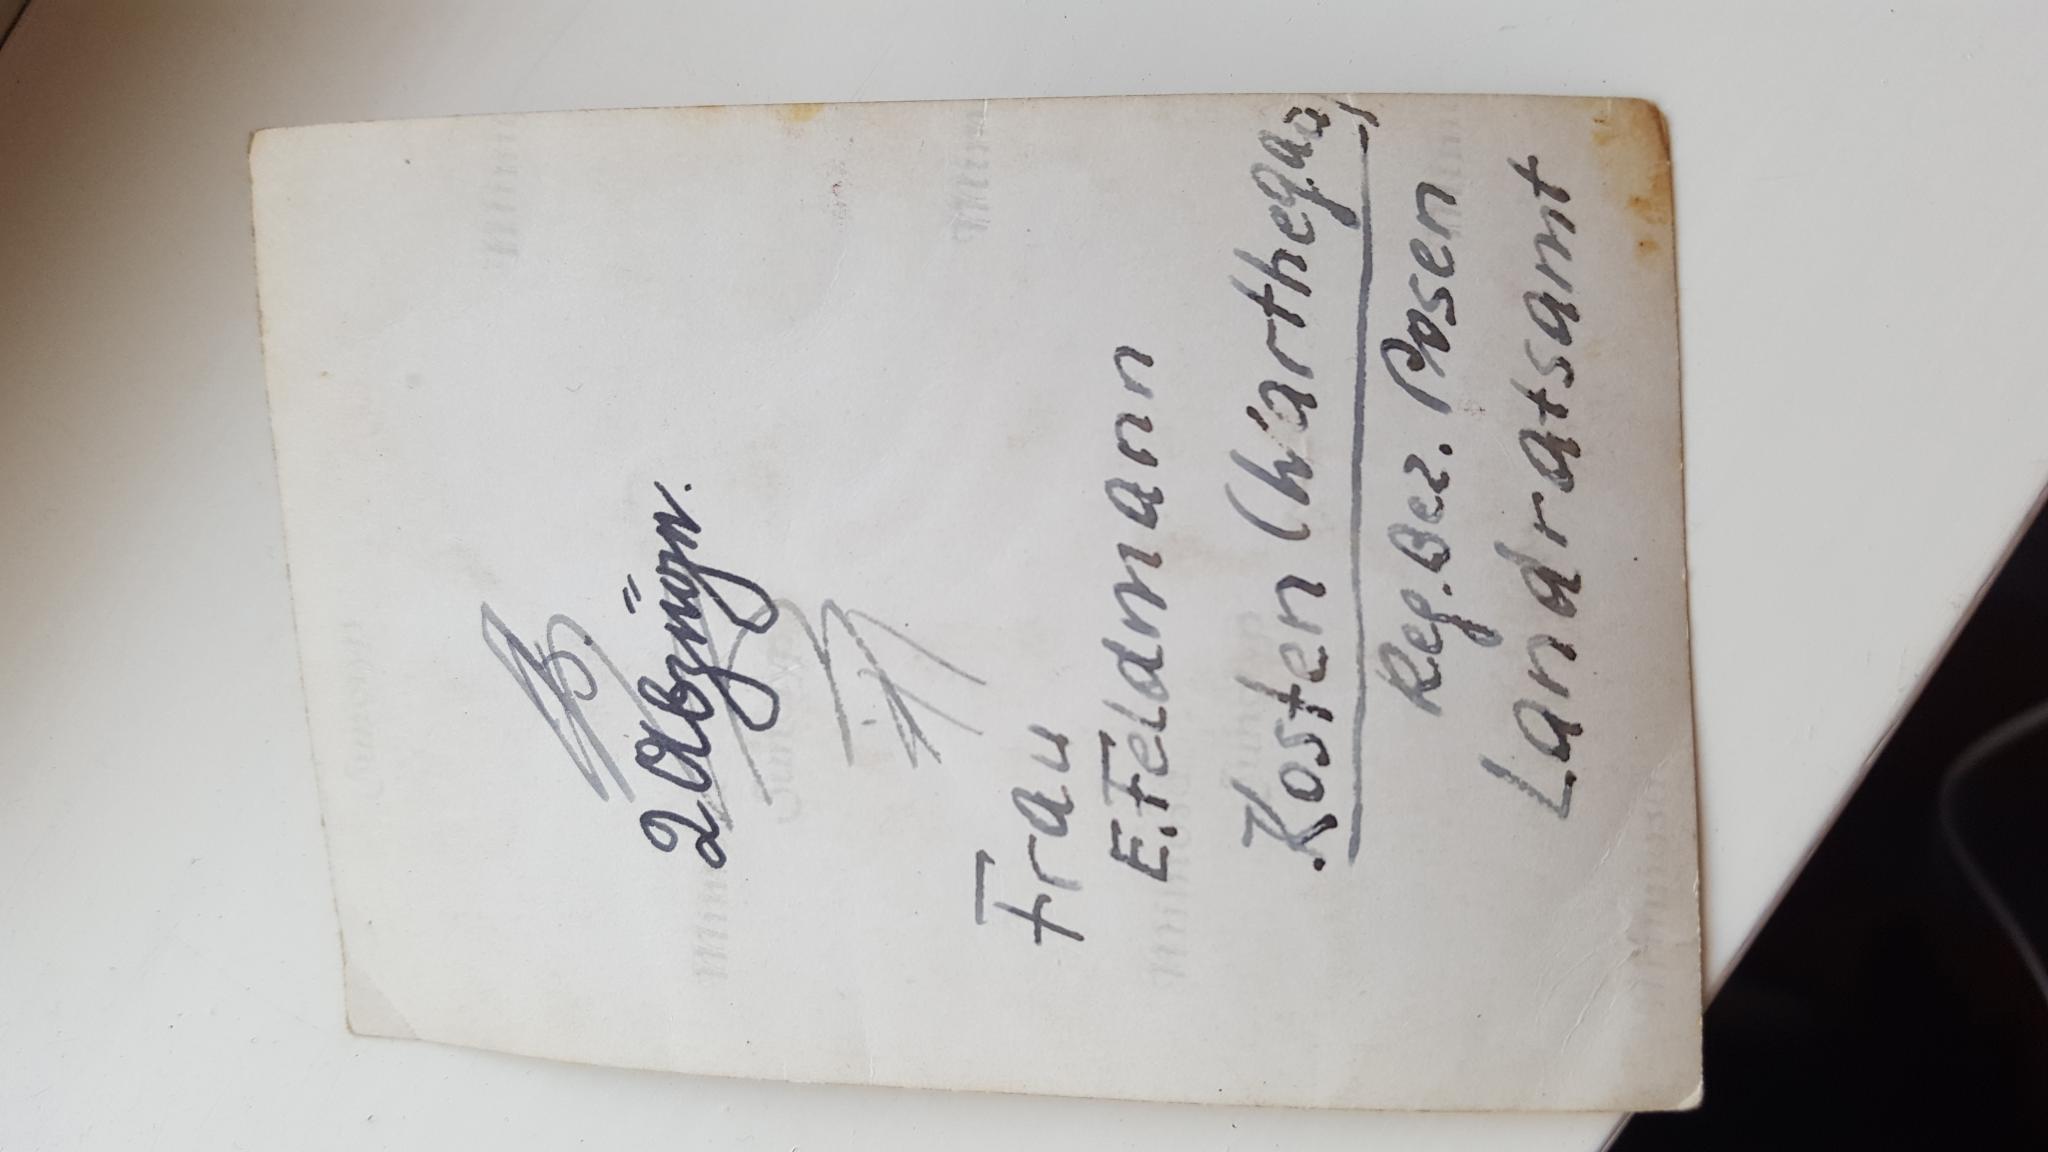 2 Abzüge.
Frau
E. Feldmann
Kosten (Warthegau)
Reg. Bez. Posen
Landratsamt